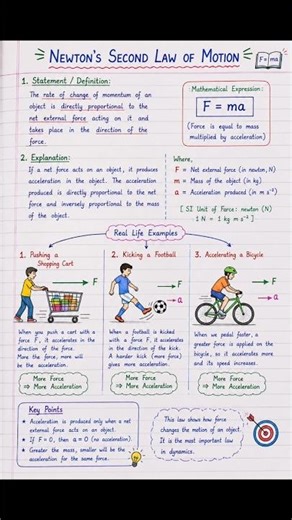 NEWTON'S SECOND LAW OF MOTION
F = ma
1. Statement / Definition:
The rate of change of momentum of an
object is directly proportional to the
net external force acting on it and
takes place in the direction of the
force.
Mathematical Expression:
F = ma
(Force is equal to mass
multiplied by acceleration)
2. Explanation:
If a net force acts on an object, it produces
acceleration in the object. The acceleration
produced is directly proportional to the net
force and inversely proportional to the mass
of the object.
Where,
F = Net external force (in newton, N)
m = Mass of the object (in kg)
a = Acceleration produced (in m s⁻²)
[ SI Unit of Force: newton (N)
1 N = 1 kg m s⁻² ]
Real Life Examples
1. Pushing a
Shopping Cart
F
When you push a cart with a
force F, it accelerates in the
direction of the force.
More the force, more will
be the acceleration.
More Force
⇒ More Acceleration
2. Kicking a Football
F
a
When a football is kicked
with a force F, it accelerates
in the direction of the kick.
A harder kick (more force)
gives more acceleration.
More Force
⇒ More Acceleration
3. Accelerating a Bicycle
F
a
When we pedal faster, a
greater force is applied on the
bicycle, so it accelerates more
and its speed increases.
More Force
⇒ More Acceleration
Key Points
★ Acceleration is produced only when a net
external force acts on an object.
★ If F = 0, then a = 0 (no acceleration).
★ Greater the mass, smaller will be the
acceleration for the same force.
This law shows how force
changes the motion of an object.
It is the most important law
in dynamics.